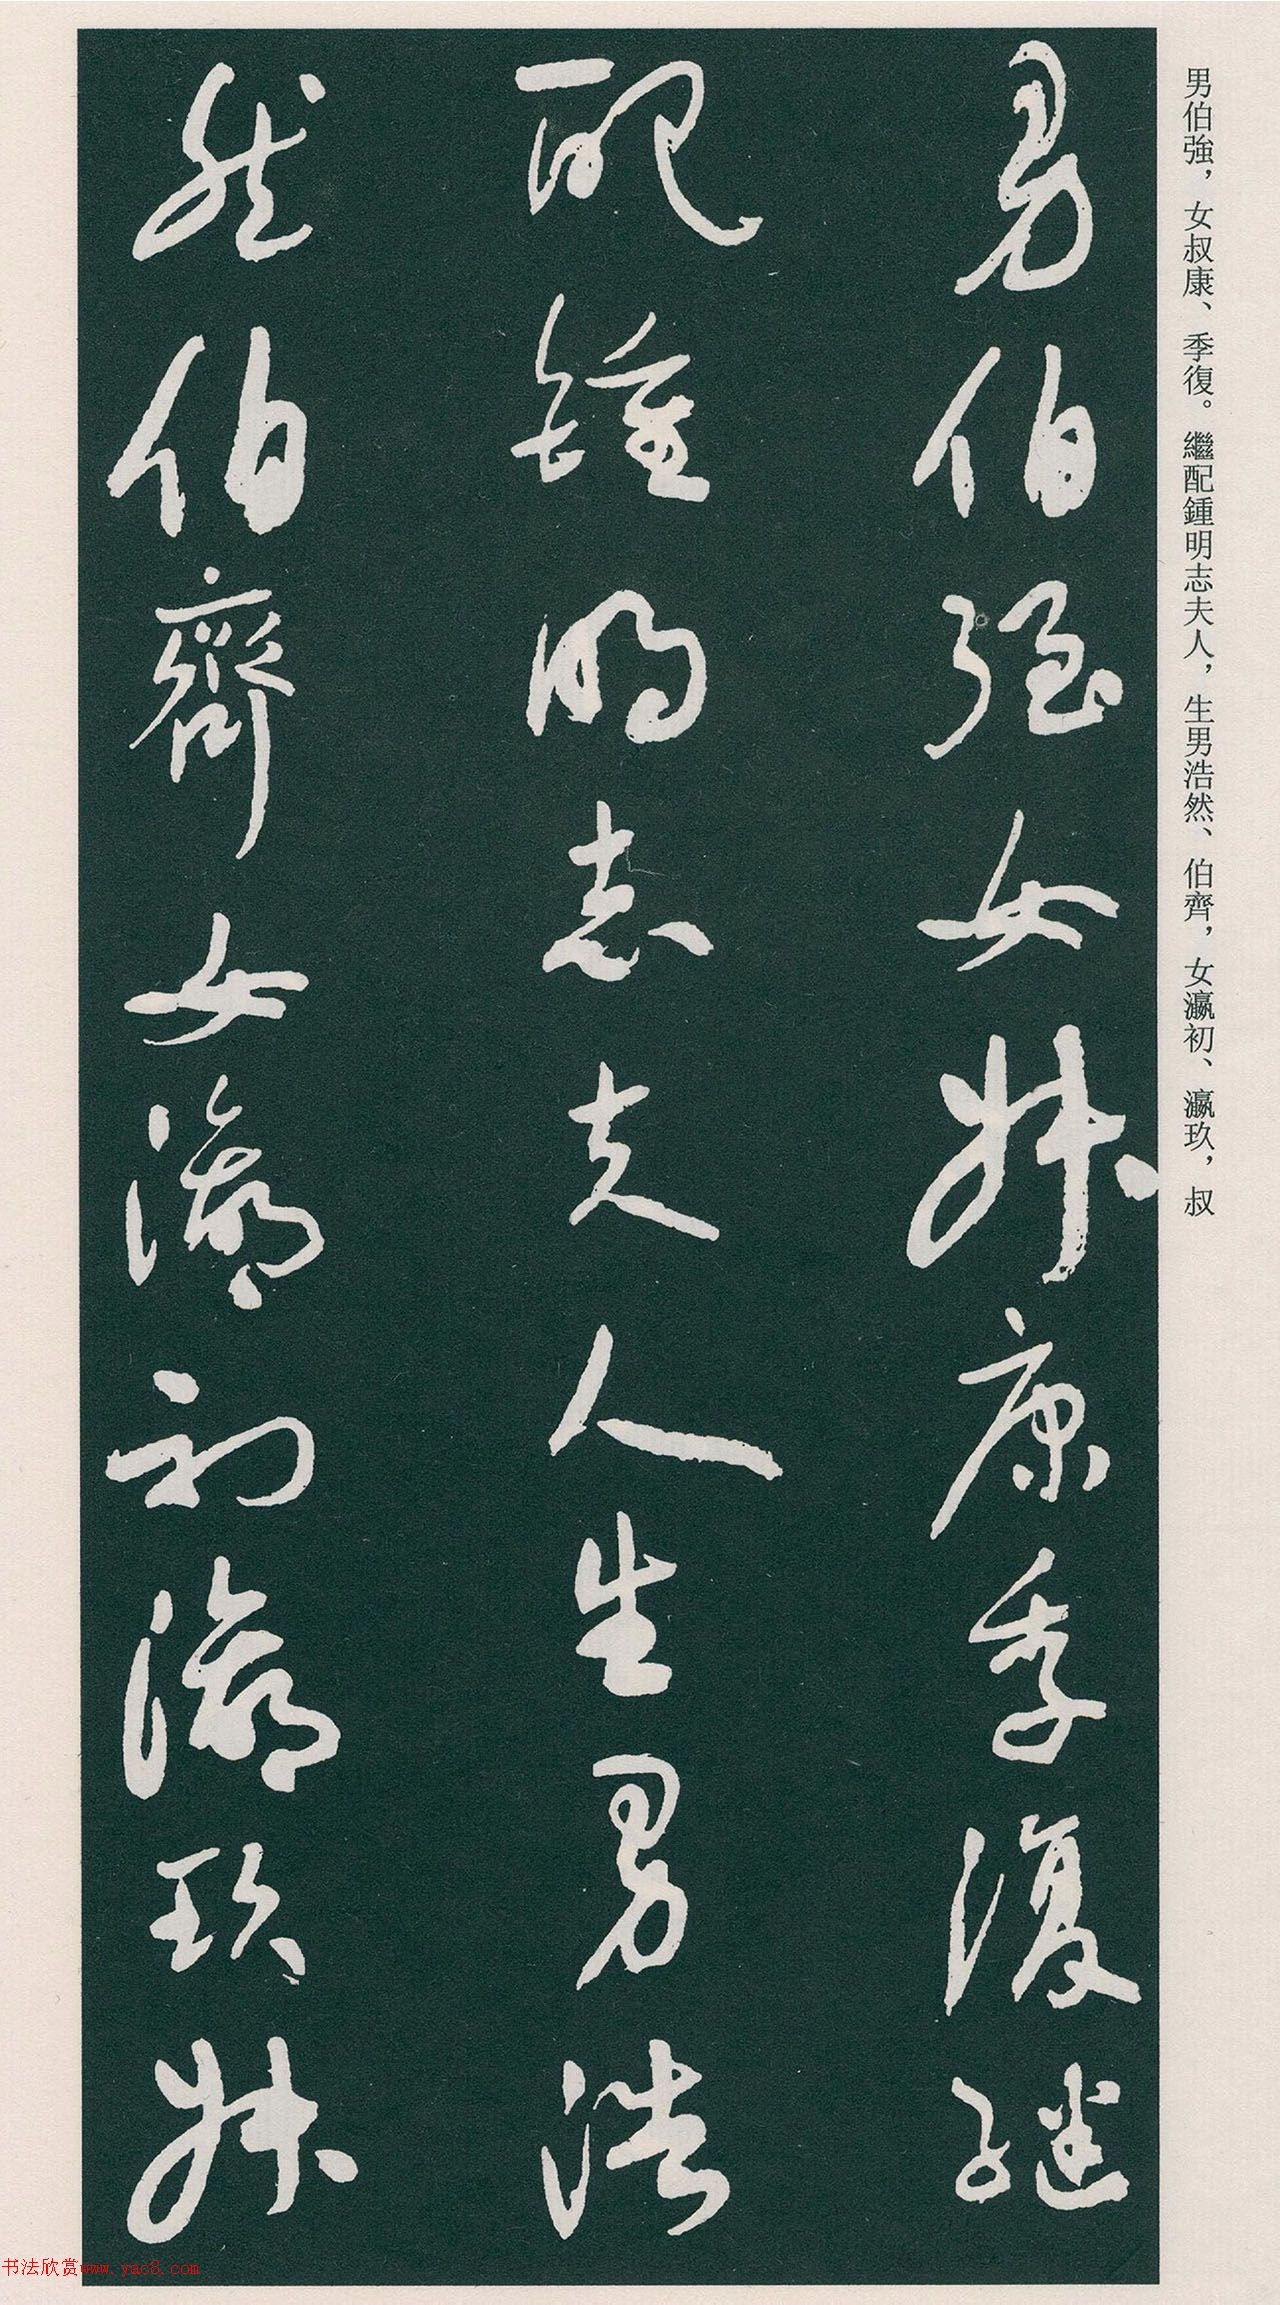 男伯強，女叔康、季復。繼配鍾明志夫人，生男浩然、伯齊，女瀛初、瀛玖，叔
男伯强女叔康季復繼
配鍾明志夫人生男浩
然伯齊女瀛初瀛玖叔
书法欣赏www.yac8.com